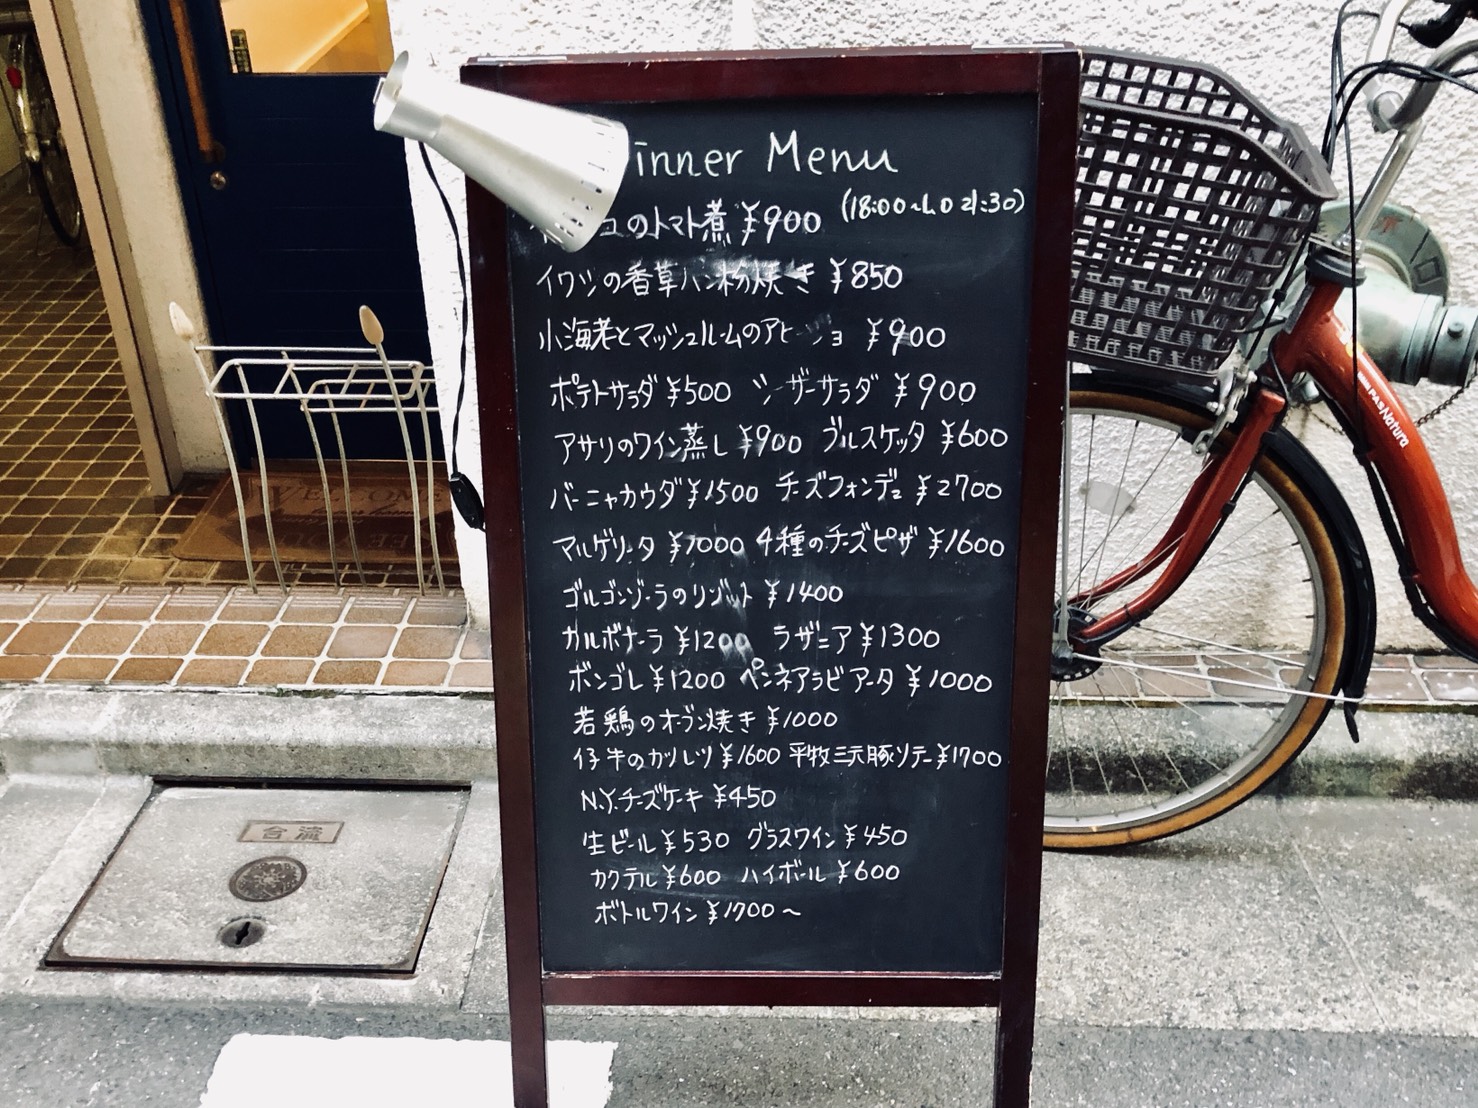 inner Menu
(18:00～L.O 21:30)
コのトマト煮 ¥900
イワシの香草パン粉焼き ¥850
小海老とマッシュルームのアヒージョ ¥900
ポテトサラダ ¥500 シーザーサラダ ¥900
アサリのワイン蒸し ¥900 ブルスケッタ ¥600
バーニャカウダ ¥1500 チーズフォンデュ ¥2700
マルゲリータ ¥1000 4種のチーズピザ ¥1600
ゴルゴンゾーラのリゾット ¥1400
カルボナーラ ¥1200 ラザニア ¥1300
ボンゴレ ¥1200 ペンネアラビアータ ¥1000
若鶏のオーブン焼き ¥1000
仔牛のカツレツ ¥1600 平牧三元豚ソテー ¥1700
N.Y.チーズケーキ ¥450
生ビール ¥530 グラスワイン ¥450
カクテル ¥600 ハイボール ¥600
ボトルワイン ¥1700～
WELCOME
PAS Natura
合流